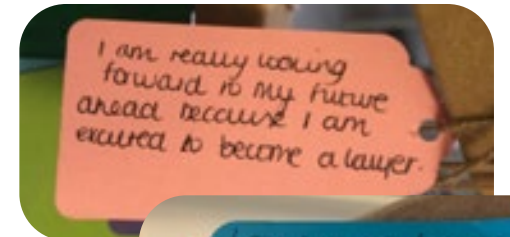 I am really looking
forward to my future
ahead because I am
excited to become a lawyer.